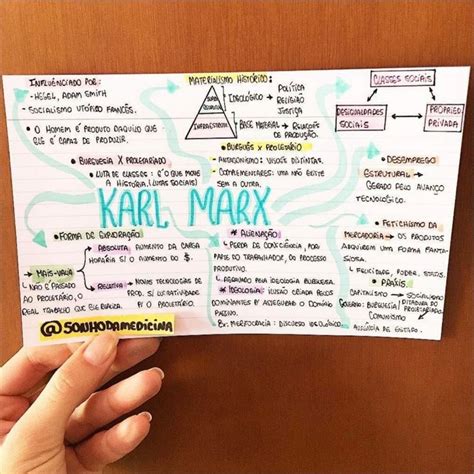 INFLUENCIADO POR:
- HEGEL, ADAM SMITH
- SOCIALISMO UTÓPICO FRANCÊS.
• O HOMEM É PRODUTO DAQUILO QUE
ELE É CAPAZ DE PRODUZIR.
• BURGUESIA X PROLETARIADO
• LUTA DE CLASSES: É O QUE MOVE
A HISTÓRIA (LUTAS SOCIAIS)
MATERIALISMO HISTÓRICO:
SUPER
ESTRUTURA
INFRAESTRUTURA
IDEOLÓGICO
POLÍTICA
RELIGIÃO
JUSTIÇA
BASE MATERIAL → RELAÇÕES
DE PRODUÇÃO.
• BURGUÊS X PROLETÁRIO
- ANTAGONISMO: VISÕES DISTINTAS.
- COMPLEMENTARES: UMA NÃO EXISTE
SEM A OUTRA.
CLASSES SOCIAIS
DESIGUALDADES
SOCIAIS
PROPRIED
PRIVADA
• DESEMPREGO
ESTRUTURAL →
GERADO PELO AVANÇO
TECNOLÓGICO.
KARL MARX
• FORMA DE EXPLORAÇÃO
MAIS-VALIA
ABSOLUTA
AUMENTO DA CARGA
HORÁRIA S/ O AUMENTO DO $.
↳ NÃO É PAGADO
AO PROLETÁRIO, O
REAL TRABALHO QUE ELE REALIZA.
RELATIVA
NOVAS TECNOLOGIAS DE
PROD. S/ LUCRATIVIDADE
P/ O PROLETÁRIO.
* ALIENAÇÃO
↳ PERDA DE CONSCIÊNCIA, POR
PARTE DO TRABALHADOR, DO PROCESSO
PRODUTIVO.
PELA IDEOLOGIA BURGUESA.
* IDEOLOGIA: ILUSÃO CRIADA PELOS
DOMINANTES P/ ASSEGURAR O DOMÍNIO
PASSIVO.
Ex: MERITOCRACIA: DISCURSO IDEOLÓGICO
• FETICHISMO DA
MERCADORIA → OS PRODUTOS
ADQUIREM UMA FORMA FANTA-
SIOSA.
↳ FELICIDADE, PODER, STATUS.
• PRÁXIS.
CAPITALISMO → SOCIALISMO
BURGUESIA/ DITADURA DO
PROLETARIADO.
COMUNISMO
AUSÊNCIA DE ESTADO.
@SONHODAMEDICINA